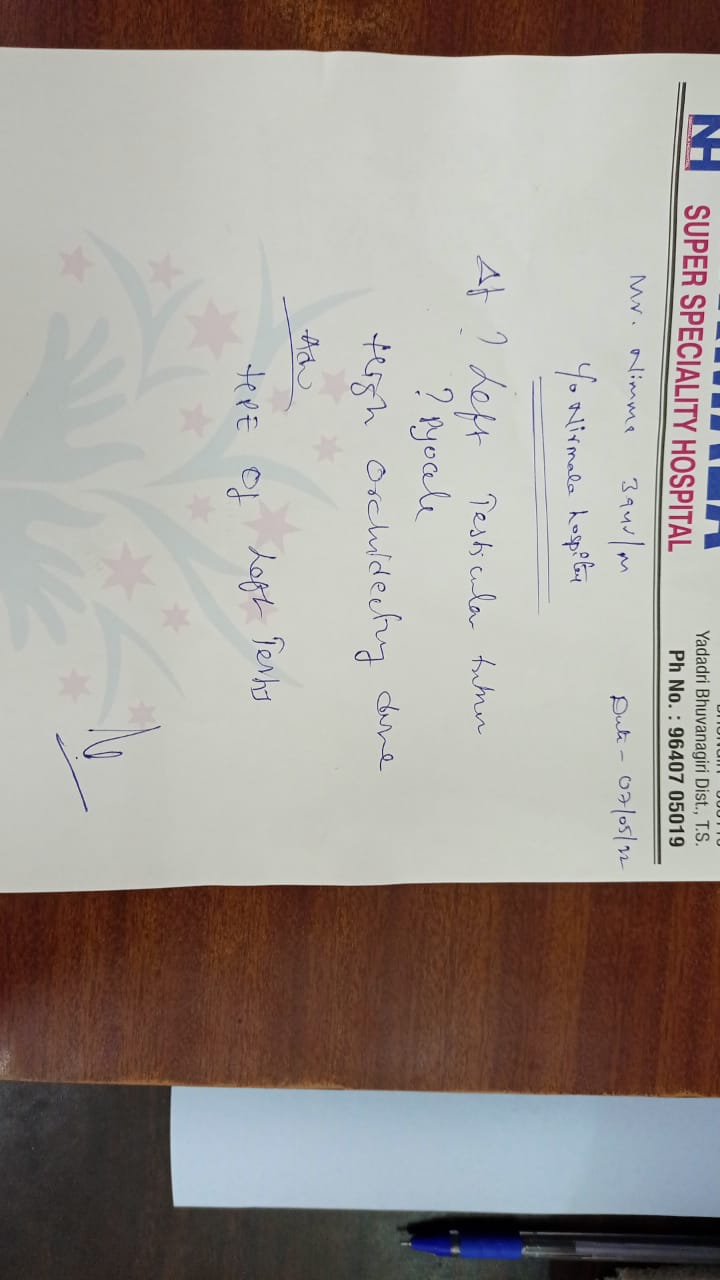 NH SUPER SPECIALITY HOSPITAL
Yadadri Bhuvanagiri Dist., T.S.
Ph No. : 96407 05019
Mr. Nimma 39yr/m Date - 07/05/22
Nirmala hospital
? Left Testicular tumor
? Pyocele
High orchidectomy done
Adv
HPE of Left Testis